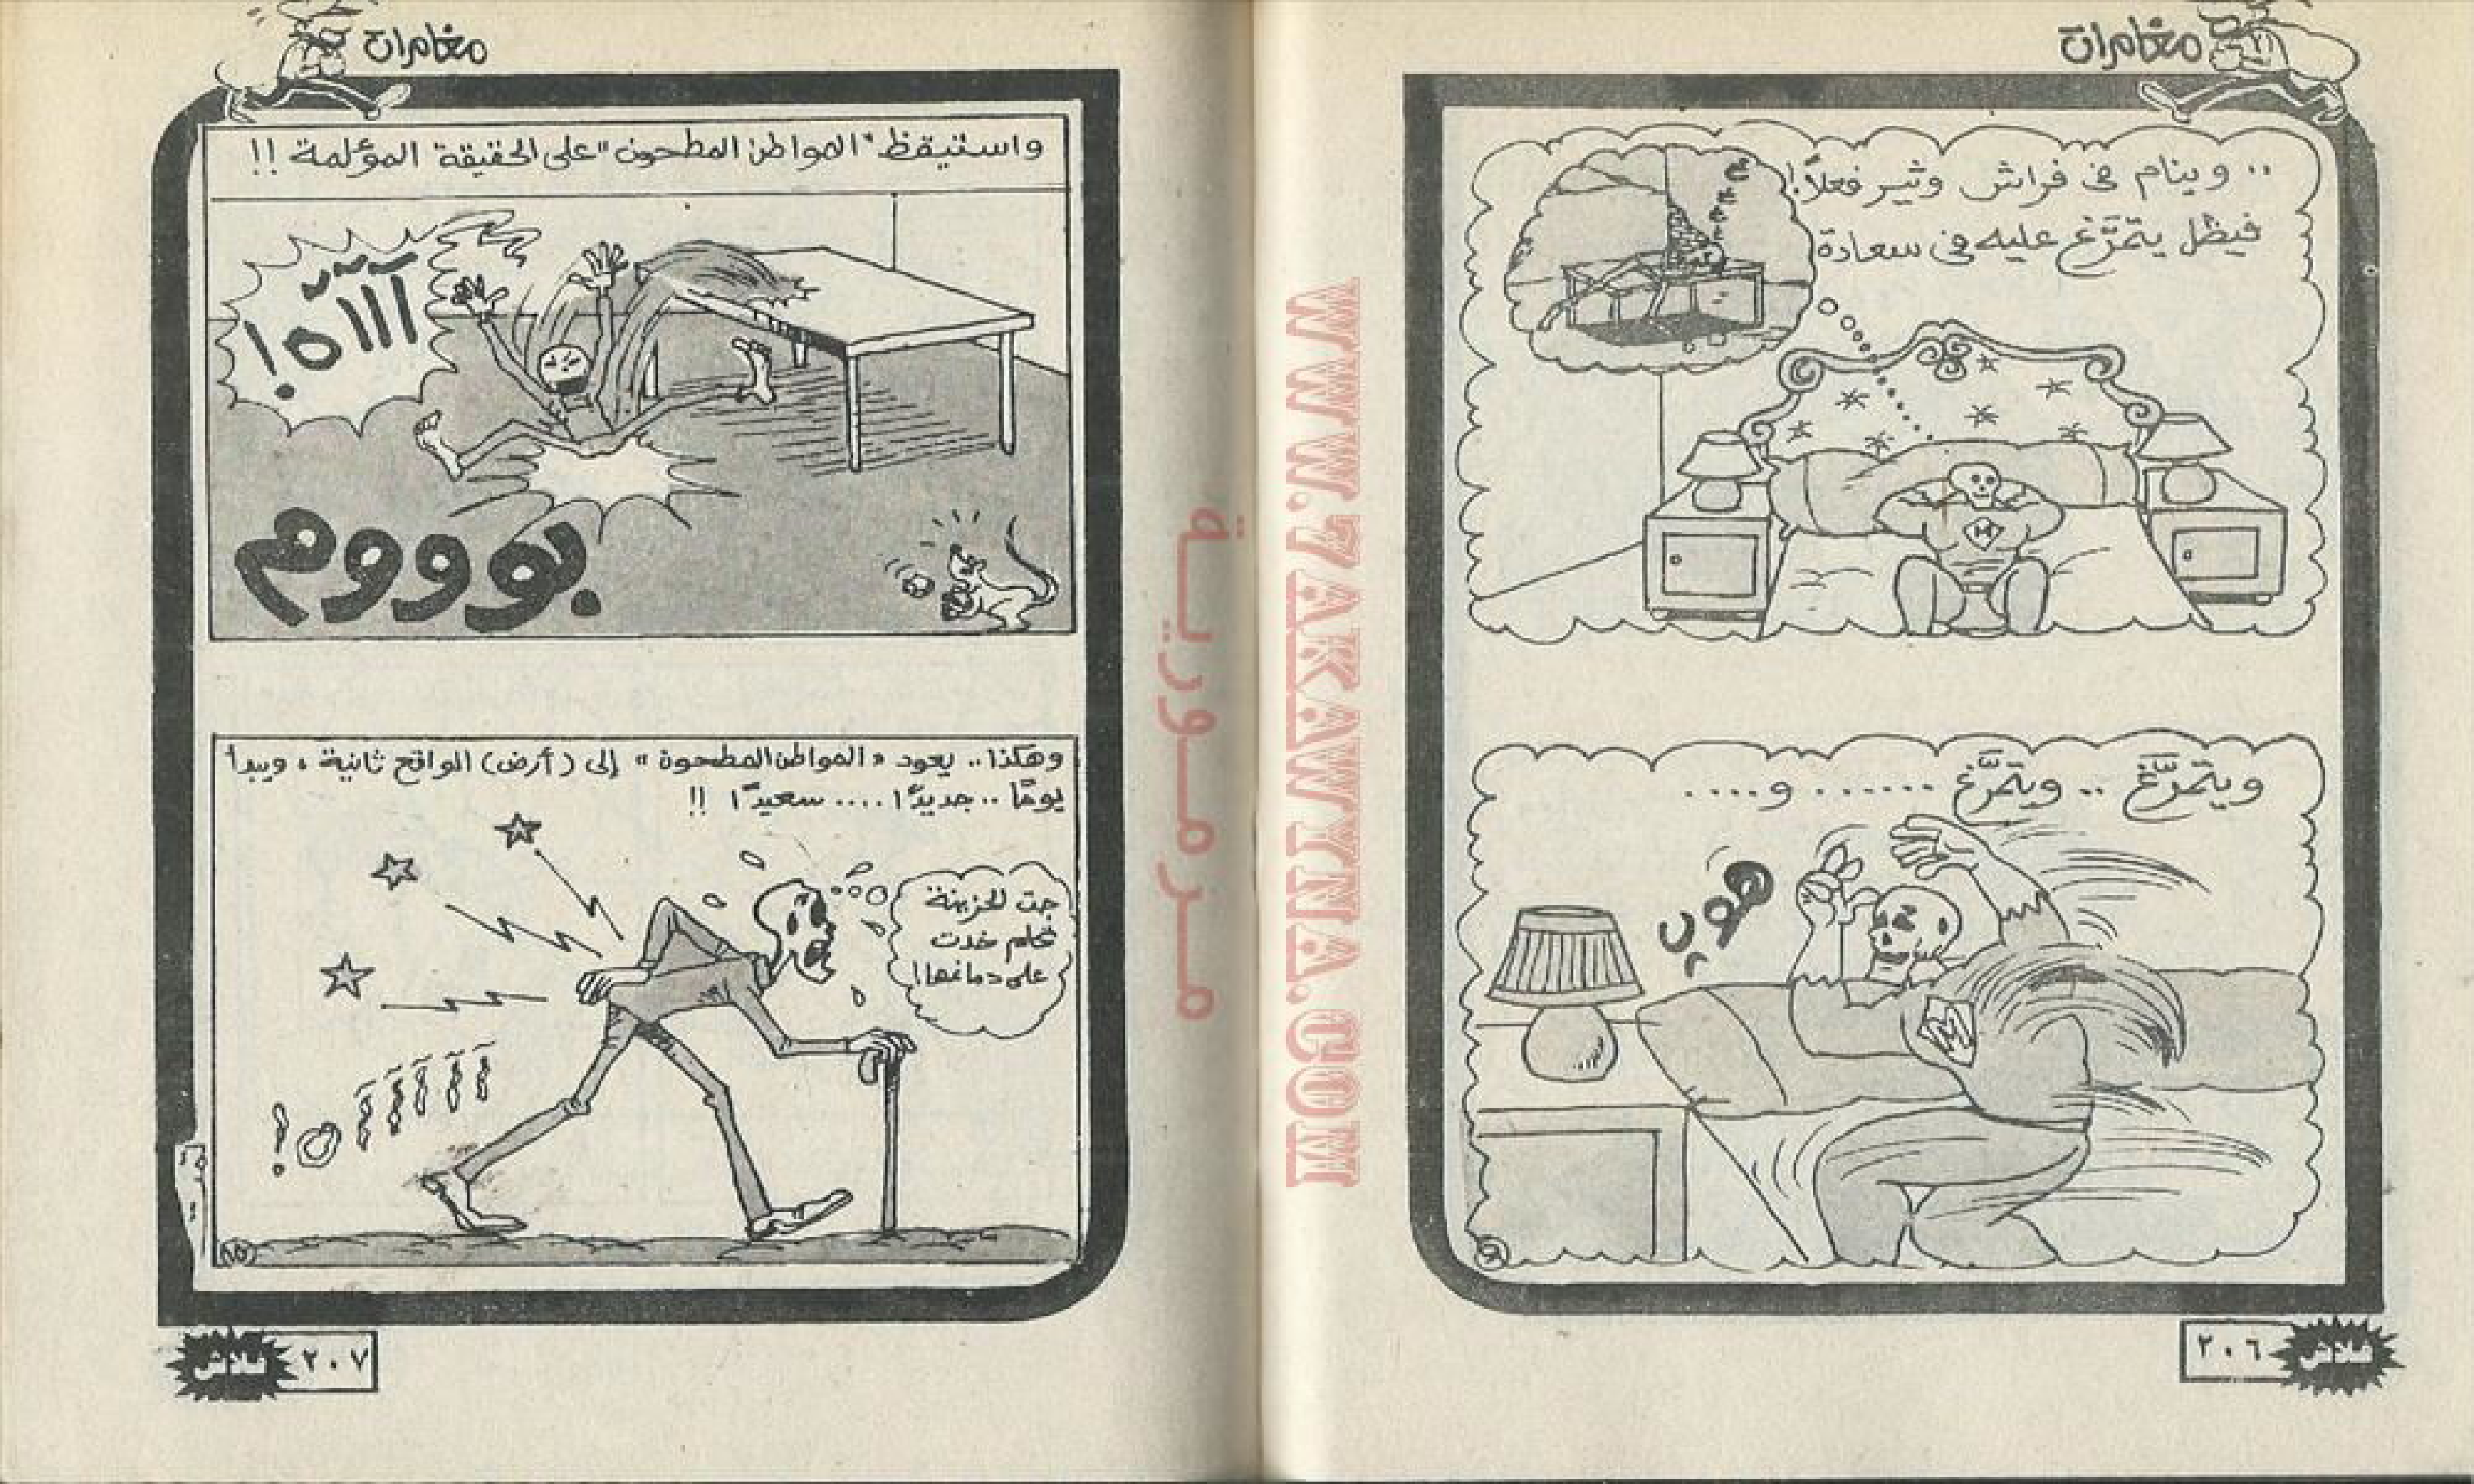 مغامرات
.. وينام في فراش وثير فعلاً!
فيظل يتمرَّغ عليه في سعادة
ويتمرَّغ .. ويتمرَّغ ...... و....
هوب
٢٠٦
فلاش
مغامرات
واستيقظ "المواطن المطحون" على الحقيقة المؤلمة !!
آآآه!
بوووم
وهكذا.. يعود «المواطن المطحون» إلى (أرض) الواقع ثانية، ويبدأ
يومًا .. جديدًا .... سعيدًا !!
جت الحزينة
تحلم خدت
على دماغها!
٢٠٧
فلاش
WWW.7AKAWYNA.COM
مرمورية